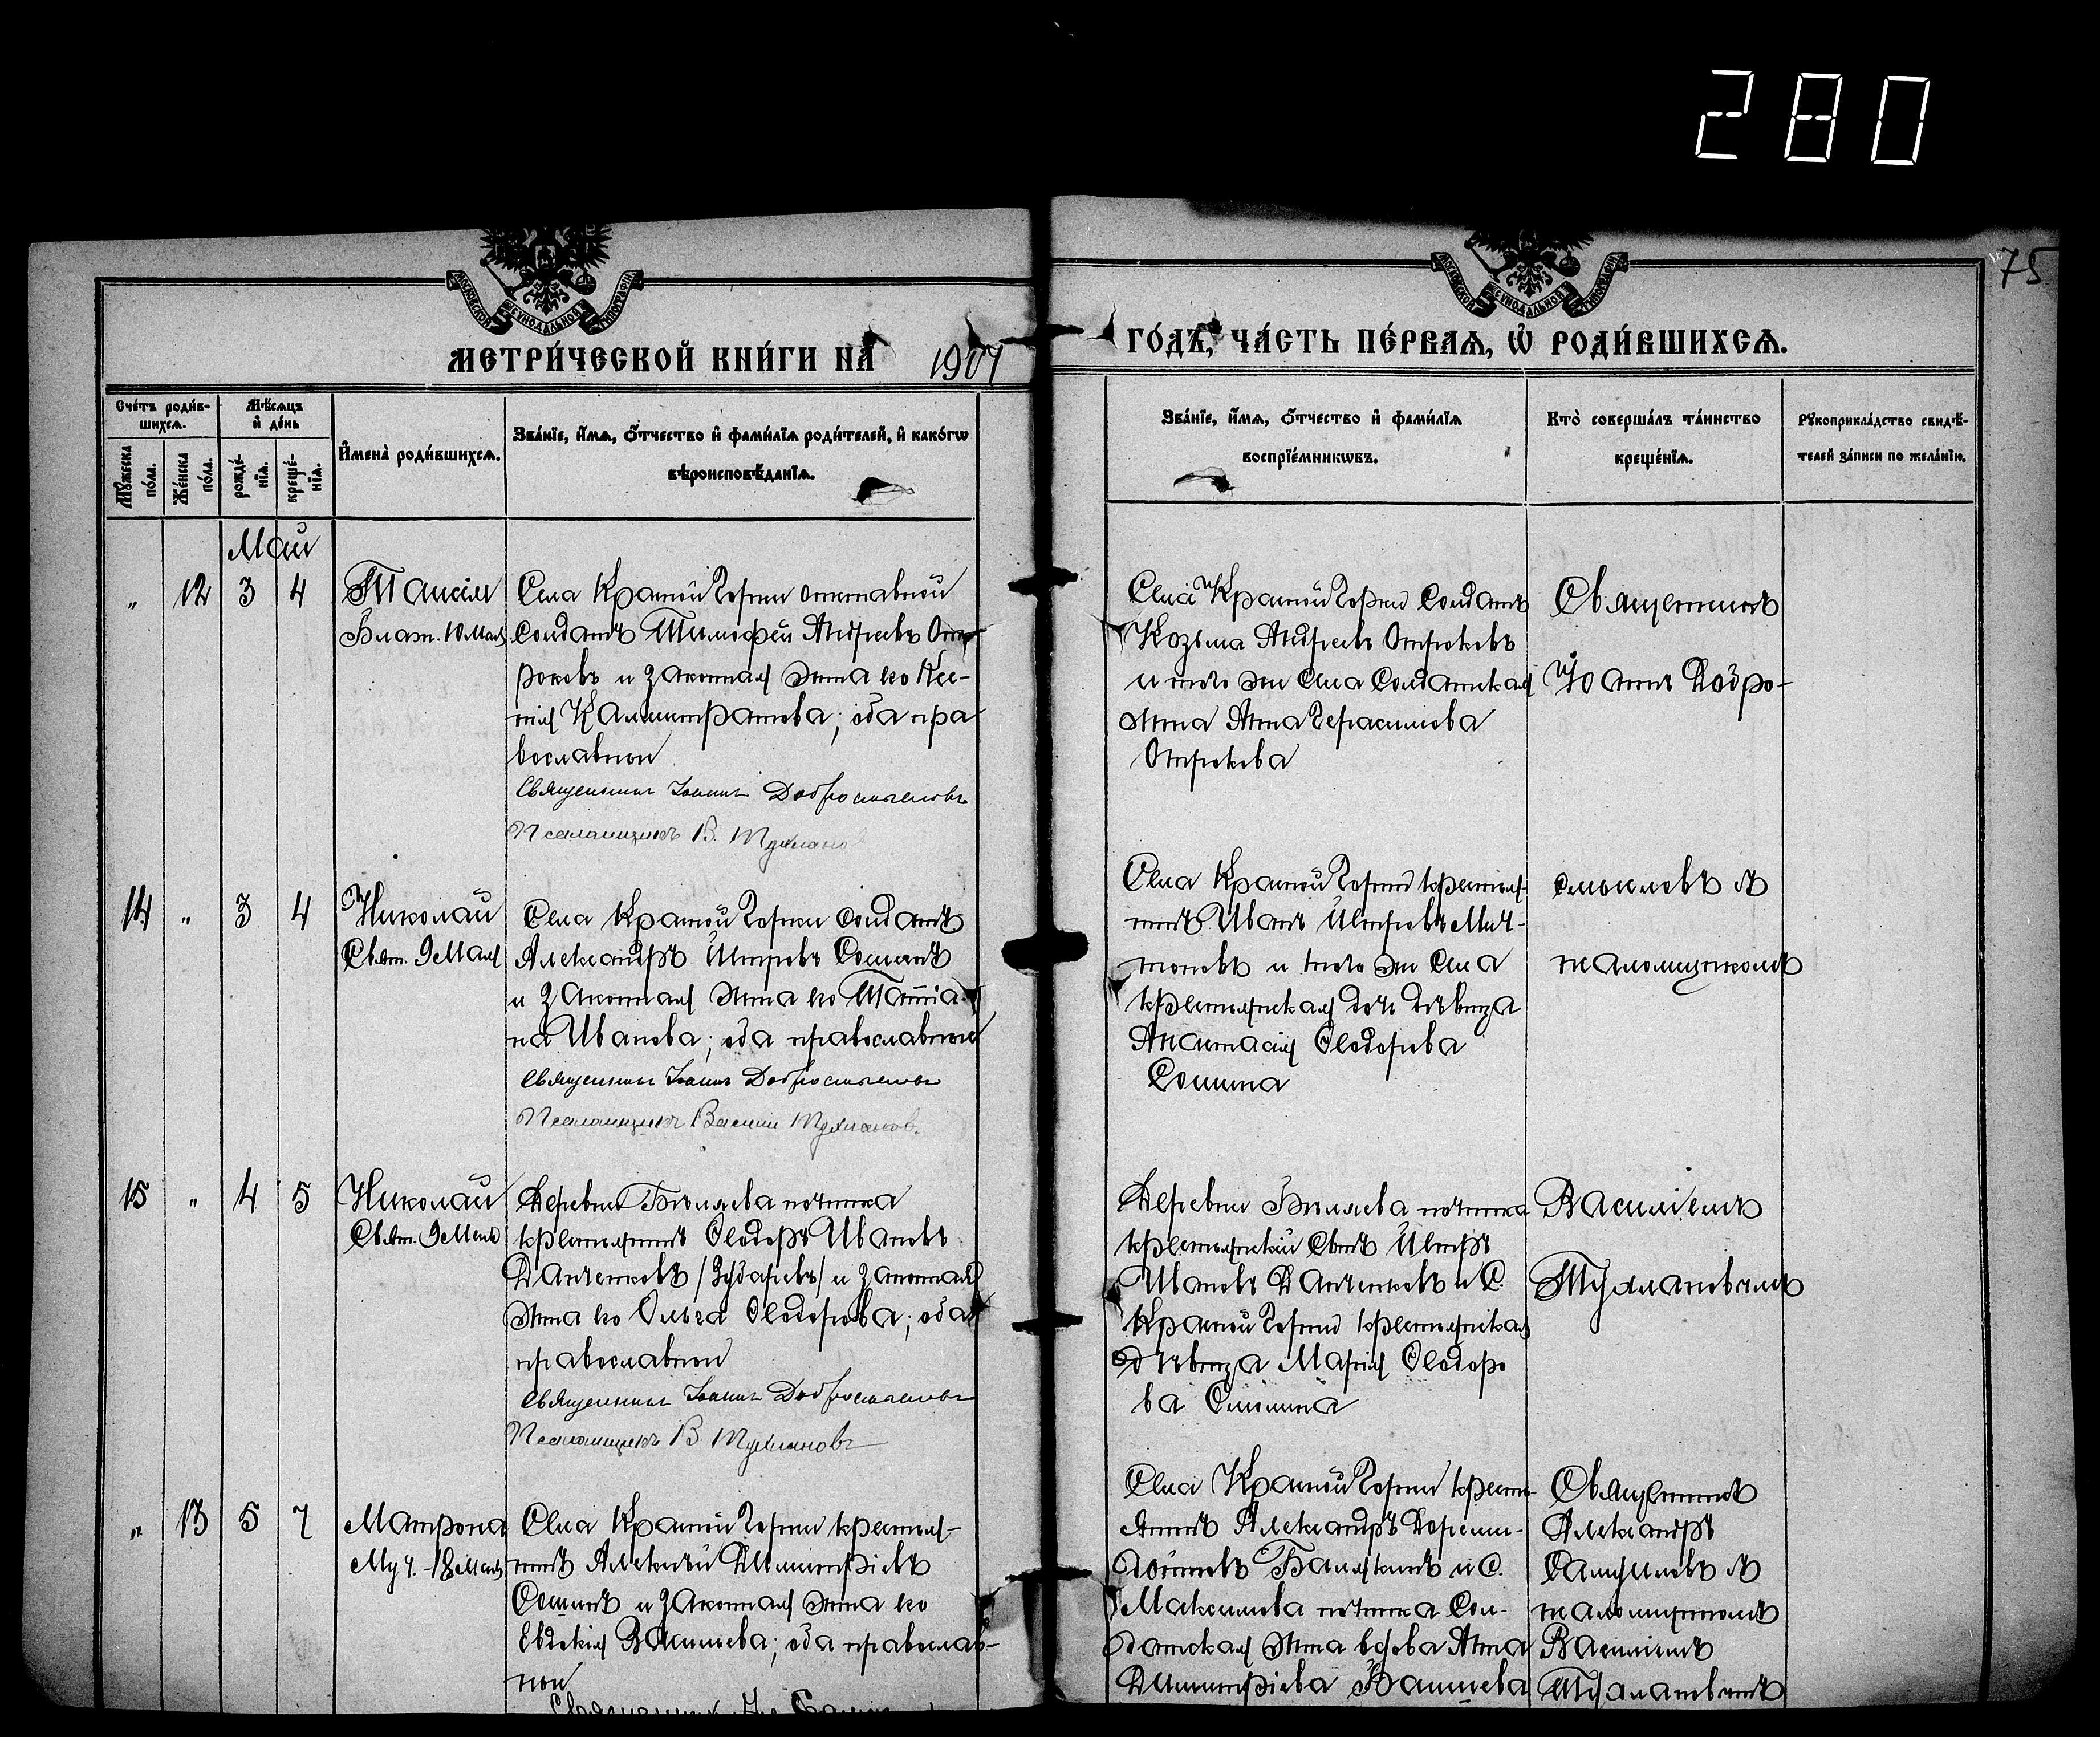 280
75
МОСКОВСКОЙ СУНОДАЛЬНОЙ ТИПОГРАФІИ
МОСКОВСКОЙ СУНОДАЛЬНОЙ ТИПОГРАФІИ
МЕТРИ́ЧЕСКОЙ КНИ́ГИ НА 1907 ГО́ДЪ, ЧА́СТЬ ПЕ́РВАЯ, Ѡ РОДИ́ВШИХСѦ.
Сче́тъ роди́в-
шихсѧ.
Мѣ́сѧцъ
и де́нь
Мꙋ́жеска
по́ла.
Же́нска
по́ла.
рожде́-
нїѧ.
креще́-
нїѧ.
И҆мена̀ роди́вшихсѧ.
Зва́нїе, и҆́мѧ, ѻ҆́тчество и҆ фами́лїѧ роди́телей, и҆ како́гѡ
вѣроисповѣ́данїѧ.
Зва́нїе, и҆́мѧ, ѻ҆́тчество и҆ фами́лїѧ
воспрїе́мникѡвъ.
Кто̀ соверша́лъ та́инство
креще́нїѧ.
Рꙋкоприкла́дство свидѣ́-
телей за́писи по жела́нїю.
Май
„ 12 3 4
Таисія
Блаж. 10 Мая
Села Красной Горки отставной
Солдатъ Тимофей Андреевъ От-
роковъ и законная жена его Ксе-
нія Каллистратова; оба пра
вославнои
Священникъ Іоаннъ Добросмысловъ
Псаломщикъ В. Тухланов
Села Красной Горки Солдатъ
Козьма Андреевъ Отроковъ
и того же села Солдатская
жена Анна Герасимова
Отрокова
Священникъ
Іоаннъ Добро-
14 „ 3 4
Николай
Свят. 9 Мая
Села Красной Горки солдатъ
Александръ Петровъ Сошинъ
и законная жена его Татіа-
на Иванова; оба православнои
Священникъ Іоаннъ Добросмысловъ
Псаломщикъ Василій Тухланов.
Села Красной Горки крестья-
нинъ Иванъ Петровъ
и того же села
крестьянская дочь дѣвица
Анастасія Ѳеодорова
Сошина
смысловъ съ
псаломщикомъ
15 „ 4 5
Николай
Свят. 9 Мая
Деревни Бѣляева починка
крестьянинъ Ѳеодоръ Ивановъ
Данченковъ /Зубаревъ/ и законная
жена его Ольга Ѳеодорова; оба
православнои
Священникъ Іоаннъ Добросмысловъ
Псаломщикъ В. Тухлановъ
Деревни Бѣляева починка
крестьянскій сынъ Петръ
Ивановъ Данченковъ и С.
Красной Горки крестьянская
дѣвица Марія Ѳеодоро
ва
Василіемъ
Тухлановымъ
„ 13 5 7
Матрона
Муч. 18 Мая
Села Красной Горки крестья-
нинъ Алексѣй Димитріевъ
Сошинъ и законная жена его
Евдокія Васильева; оба православ-
нои
Села Красной Горки кресть-
янинъ Александръ
и С.
Максимова починка Сол-
датская жена вдова Анна
Димитріева
Священникъ
Александръ
съ
псаломщикомъ
Василіемъ
Тухлановымъ